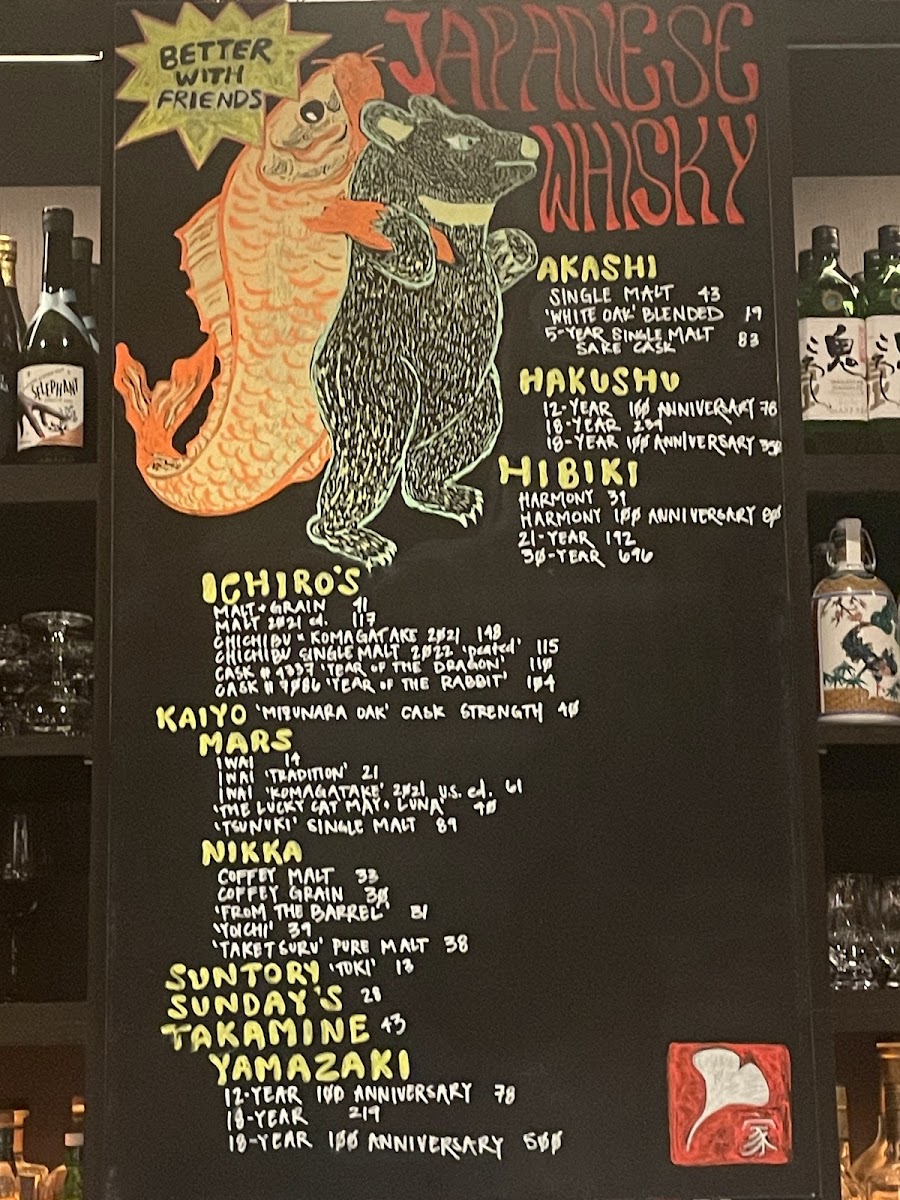 BETTER
WITH
FRIENDS
JAPANESE
WHISKY
AKASHI
SINGLE MALT 43
'WHITE OAK' BLENDED 19
5-YEAR SINGLE MALT 83
SAKE CASK
HAKUSHU
12-YEAR 100 ANNIVERSARY 78
18-YEAR
18-YEAR 100 ANNIVERSARY
HIBIKI
HARMONY 39
HARMONY 100 ANNIVERSARY 80
21-YEAR 192
30-YEAR 696
ICHIRO'S
MALT + GRAIN 41
MALT 2021 ed. 117
CHICHIBU × KOMAGATAKE 2021 148
CHICHIBU SINGLE MALT 2022 'peated' 115
CASK # 4337 'YEAR OF THE DRAGON' 110
CASK # 7086 'YEAR OF THE RABBIT' 104
KAIYO 'MIZUNARA OAK' CASK STRENGTH 40
MARS
IWAI 14
IWAI 'TRADITION' 21
IWAI 'KOMAGATAKE' 2021 U.S. ed. 61
'THE LUCKY CAT MAY + LUNA' 40
'TSUNUKI' SINGLE MALT 89
NIKKA
COFFEY MALT 33
COFFEY GRAIN 30
'FROM THE BARREL' 31
'YOICHI' 39
'TAKETSURU' PURE MALT 38
SUNTORY 'TOKI' 13
SUNDAY'S 28
TAKAMINE 43
YAMAZAKI
12-YEAR 100 ANNIVERSARY 78
18-YEAR 219
18-YEAR 100 ANNIVERSARY 500
SELEPHANT
鬼
ころし